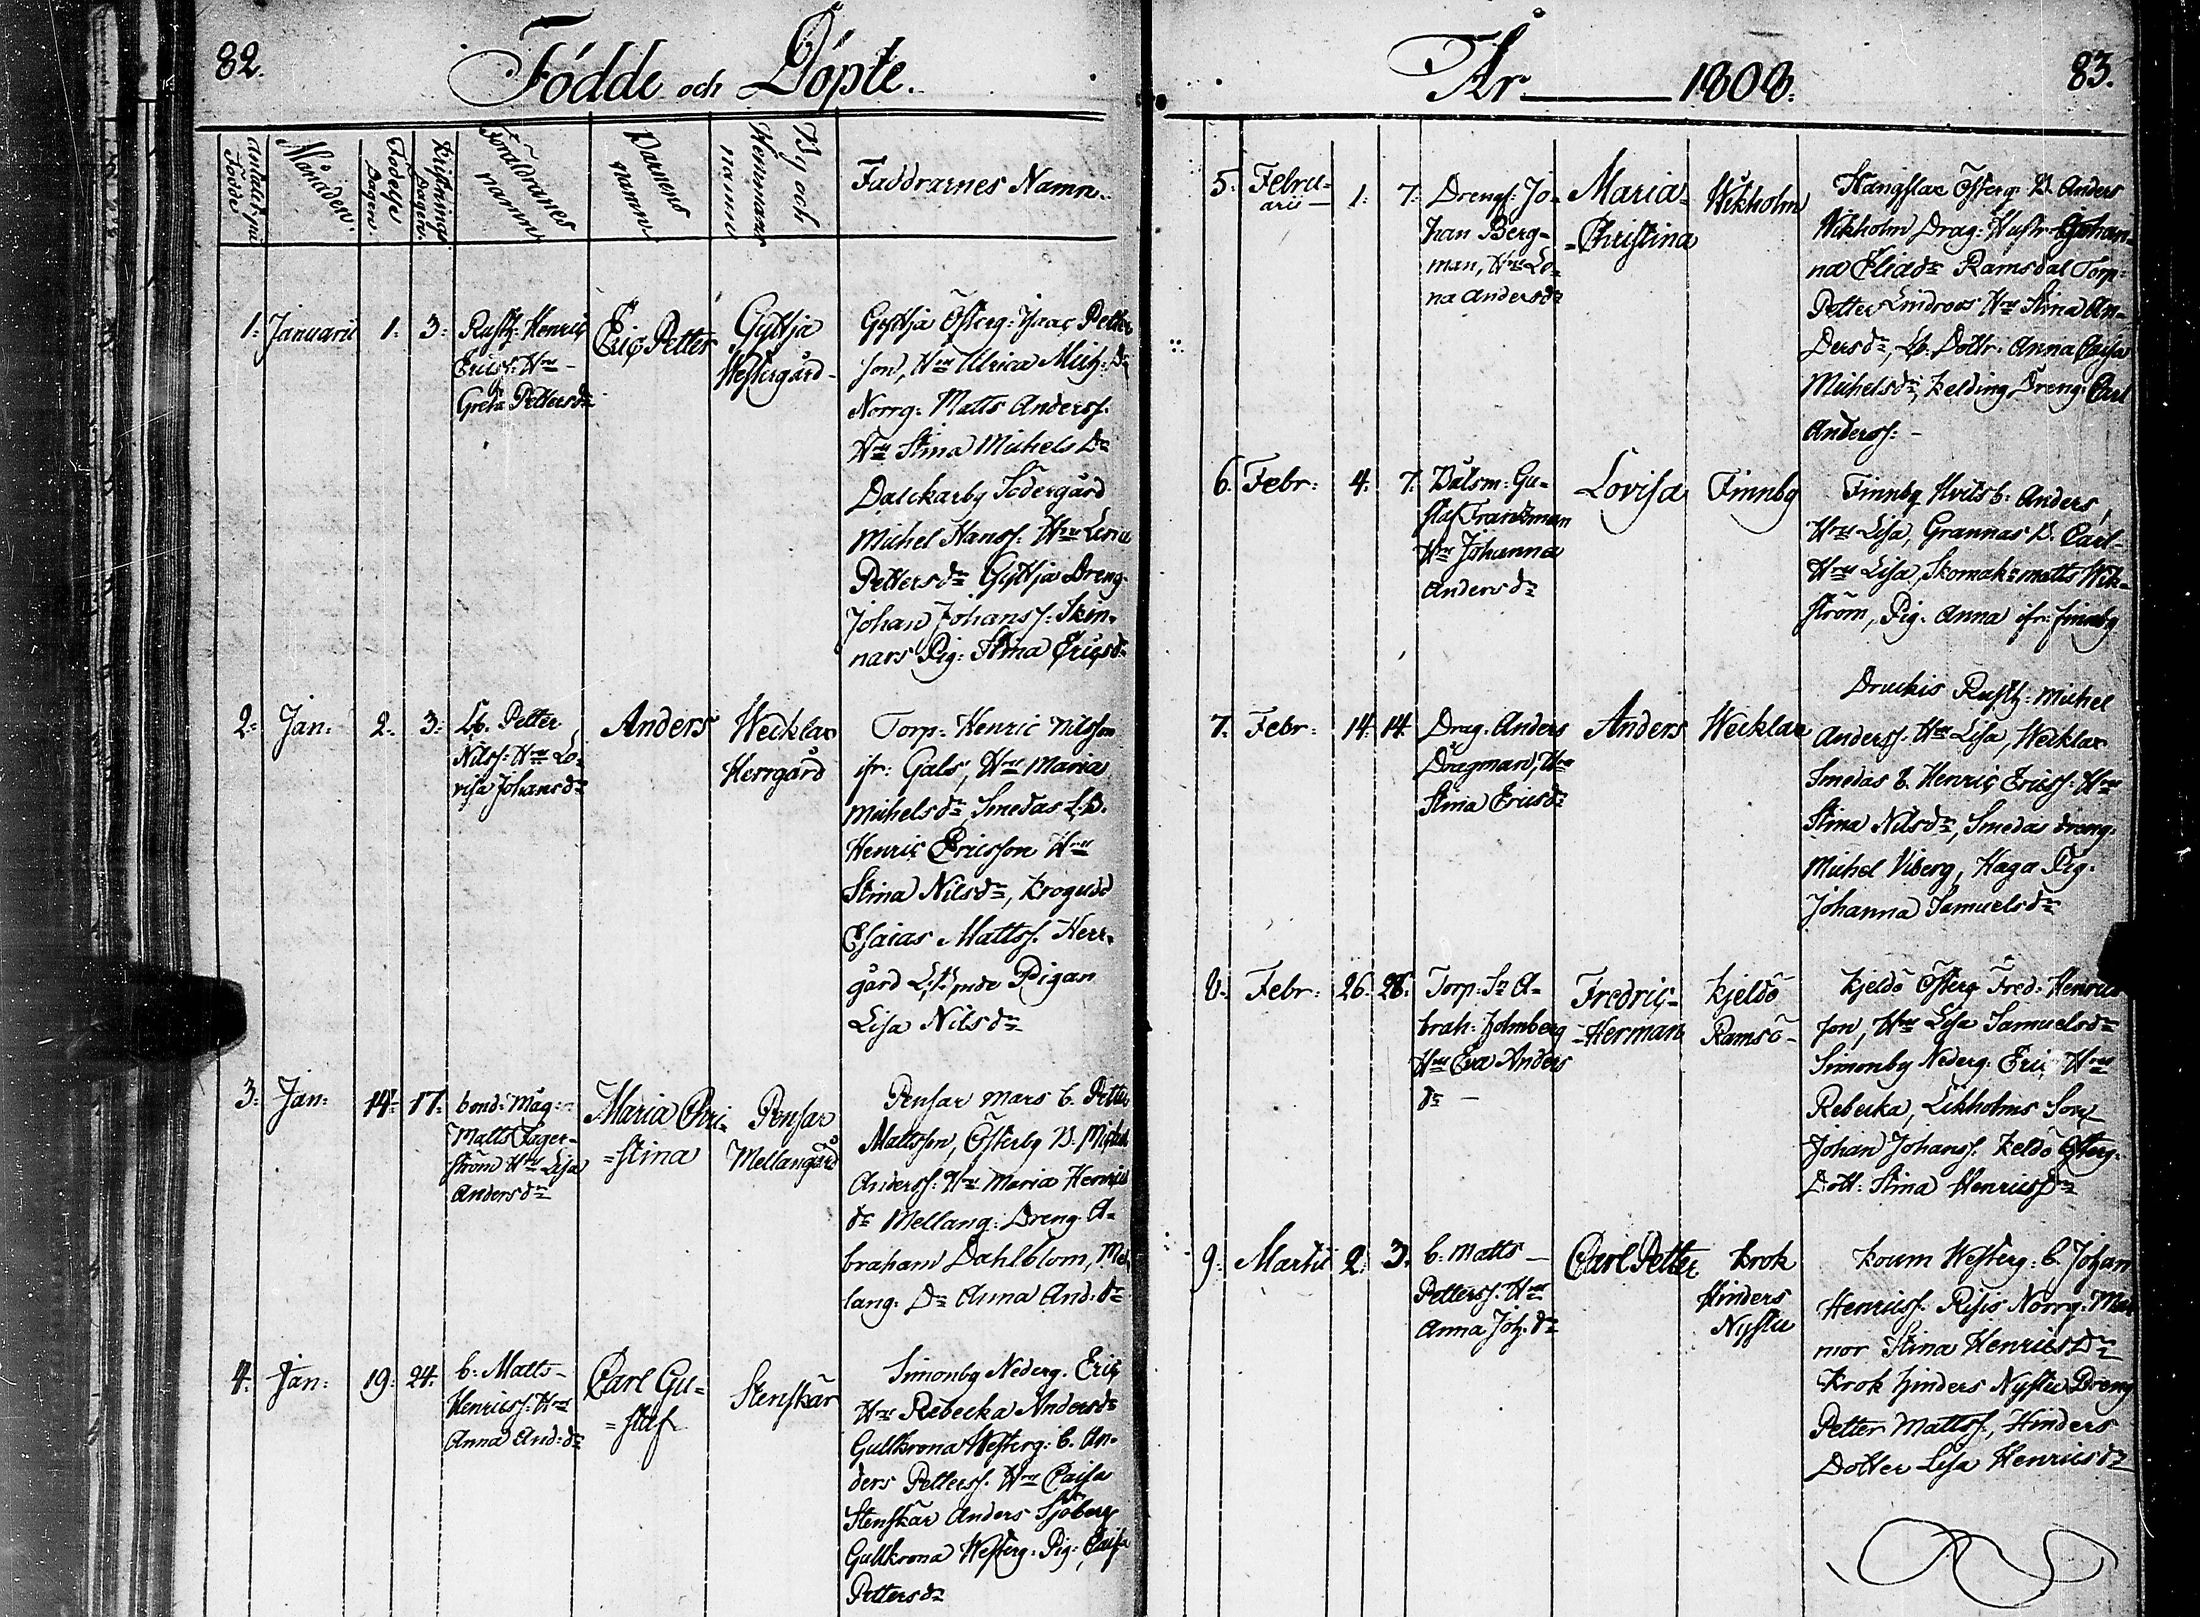 82.
Födde och Döpte.
Antalet på Födde
Månaden.
Födelse Dagen.
Kristnings Dagen.
Föräldrarnes namn
Barnens namn
By och Hemmans namn
Faddrarnes Namn.
1. Januarii 1. 3.
Rusth. Henric
Ericss. Hru
Greta Pettersdr
Eric Petter
Gyttja
Westergård
Gyttja Österg. Isaac Petters
son, Hru Ulrica Mich. Dr
Norrg. Matts Anderss.
Hru Stina Michels Dr
Dalckarby Södergård
Michel Hanss. Hru Lena
Pettersdr Gyttja Dreng.
Johan Johanss. Skin-
nars Pig. Stina Ericsdr
2. Jan. 2. 3.
Lb. Petter
Nilss. Hru Lo-
visa Johansdr
Anders
Wecklax
Herrgård
Torp. Henric Nilsson
ifr. Gals, Hru Maria
Michelsdr, Smedas L.B.
Henric Ericsson Hru
Stina Nilsdr, Krogudd
Esaias Mattss. Herr-
gård Pigan
Lisa Nilsdr
3. Jan. 14. 17.
bond. Måg.
Matts Fager-
ström Hru Lisa
Andersdr
Maria Chri-
=stina
Pensar
Mellangård
Pensar Mars b. Petter
Mattsson, Österby B. Michel
Anderss. Hru Maria Henrics
dr Mellang. Dreng A-
braham Dahlblom, Mel-
lang. Dr Anna And. dr
4. Jan. 19. 24.
b. Matts
Henricss. Hru
Anna And. dr
Carl Gu-
=staf
Stenskär
Simonby Nederg. Eric
Hru Rebecka Andersdr
Gullkrona Westerg. b. An-
ders Petterss. Hru Caisa
Stenskär Anders Sjöberg
Gullkrona Westerg. Pig. Caisa
Pettersdr
År 1808.
83.
5. Febru-
arii 1. 7.
Drengs. Jo-
han Berg-
man, Hru Le-
na Andersdr
Maria-
-Christina
Wikholm
Hangslax Österg. B. Anders
Wikholm Drag. Hustr. Johan-
na Eliædr Ramsdal Torp.
Petter Lindroos Hru Stina An-
dersdr, Lb. Dottr. Anna Caisa
Michelsdr, Kelding Dreng. Carl
Anderss.
6. Febr. 4. 7.
Båtsm. Gu-
staf Frantzman
Hru Johanna
Andersdr
Lovisa
Finnby
Finnby Kvits b. Anders,
Hru Lisa, Grannas B. Carl-
Hru Lisa, Skomak. Matts Wik-
ström, Pig. Anna ifr. Finnby
7. Febr. 14. 14.
Drag. Anders
Drågman, Hru
Stina Ericsdr
Anders
Wecklax
Druckis Rusth. Michel
Anderss. Hru Lisa, Wecklax
Smedas B. Henric Ericss. Hru
Stina Nilsdr, Smedas Dreng.
Michel Viberg, Haga Pig.
Johanna Samuelsdr
8. Febr. 26. 28.
Torp. Sn A-
brah. Holmberg
Hru Eva Anders
dr
Fredric-
-Herman
Kjeldö
Ramsö
Kjeldö Österg. Fred. Henrics
son, Hru Lisa Samuelsdr
Simonby Nederg. Eric Hru
Rebecka, Likholms Son
Johan Johanss. Keldö Österg.
Dott. Stina Henricsdr
9. Martii 2. 3.
b. Matts
Petterss. Hru
Anna Joh. dr
Carl Petter
Krok
Hinders
Nystu
Koum Westerg. b. Johan
Henricss. Risis Norrg. Mat
mor Stina Henrics Dr
Krok Hinders Nystu Dreng
Petter Mattss., Hinders
Dotter Lisa Henricsdr